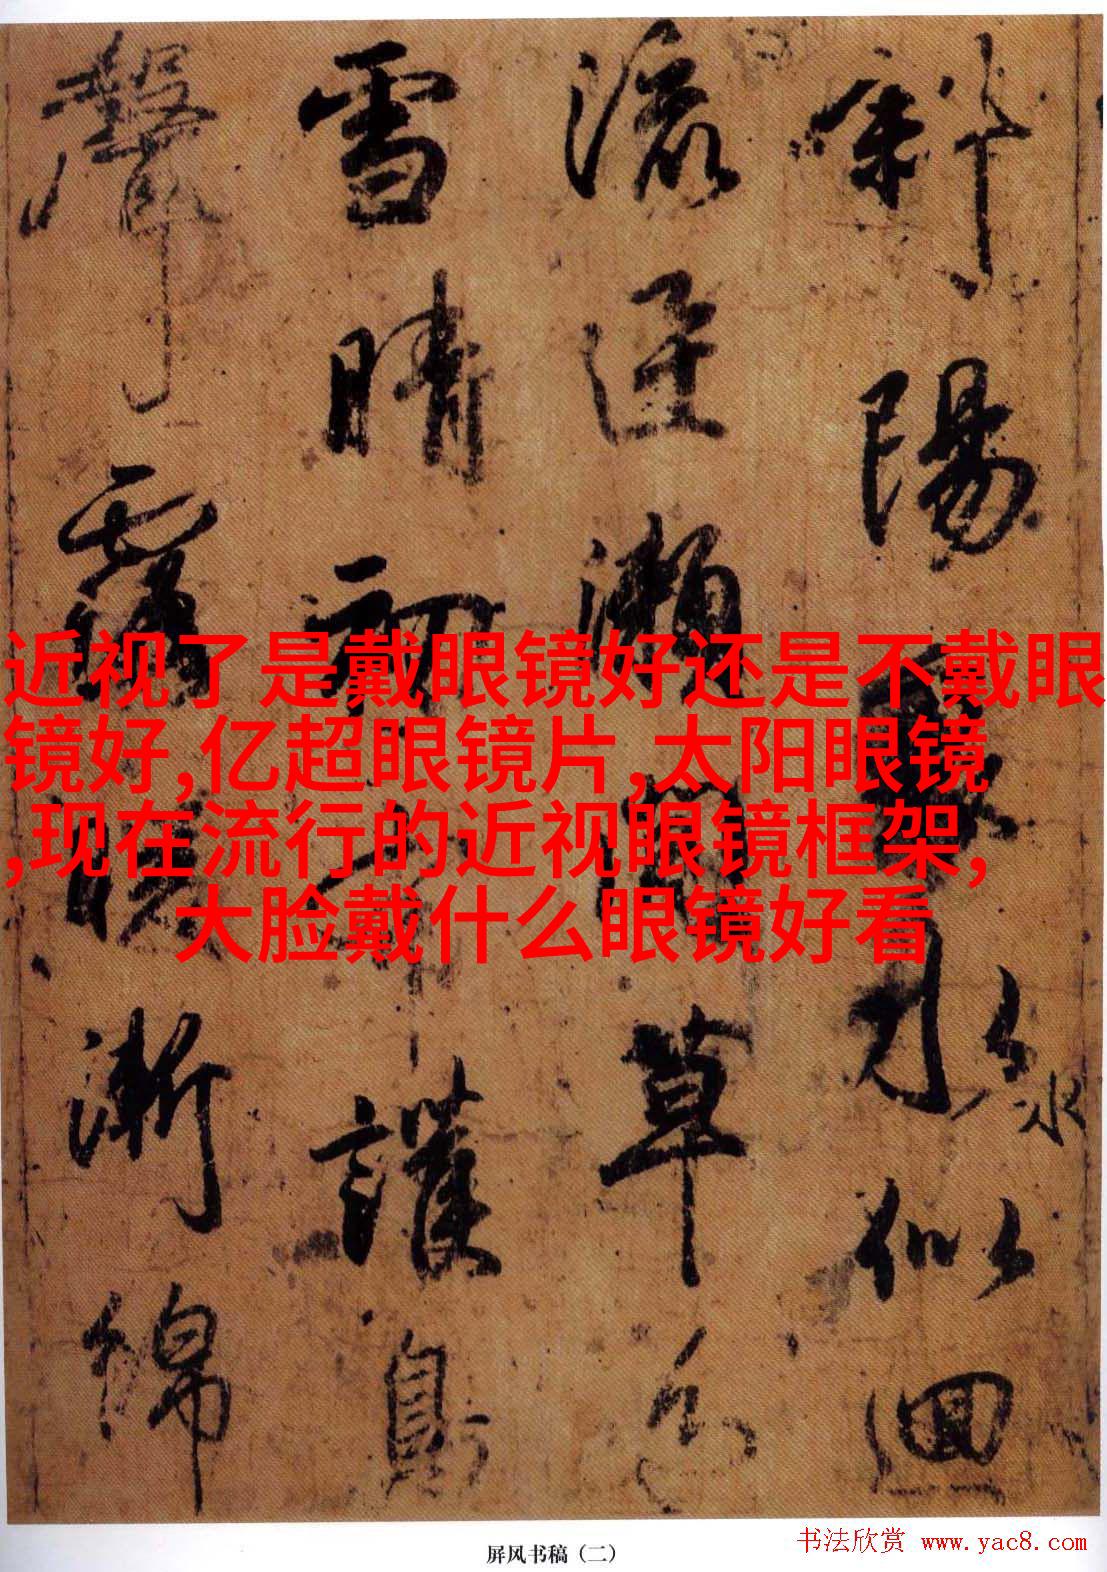 斜陽水似洄
流迳瀬草色
雪晴初護鳥
聲漸綿
近视了是戴眼镜好还是不戴眼
镜好,亿超眼镜片,太阳眼镜
,现在流行的近视眼镜框架,
大脸戴什么眼镜好看
屏风书稿（二）
书法欣赏 www.yac8.com